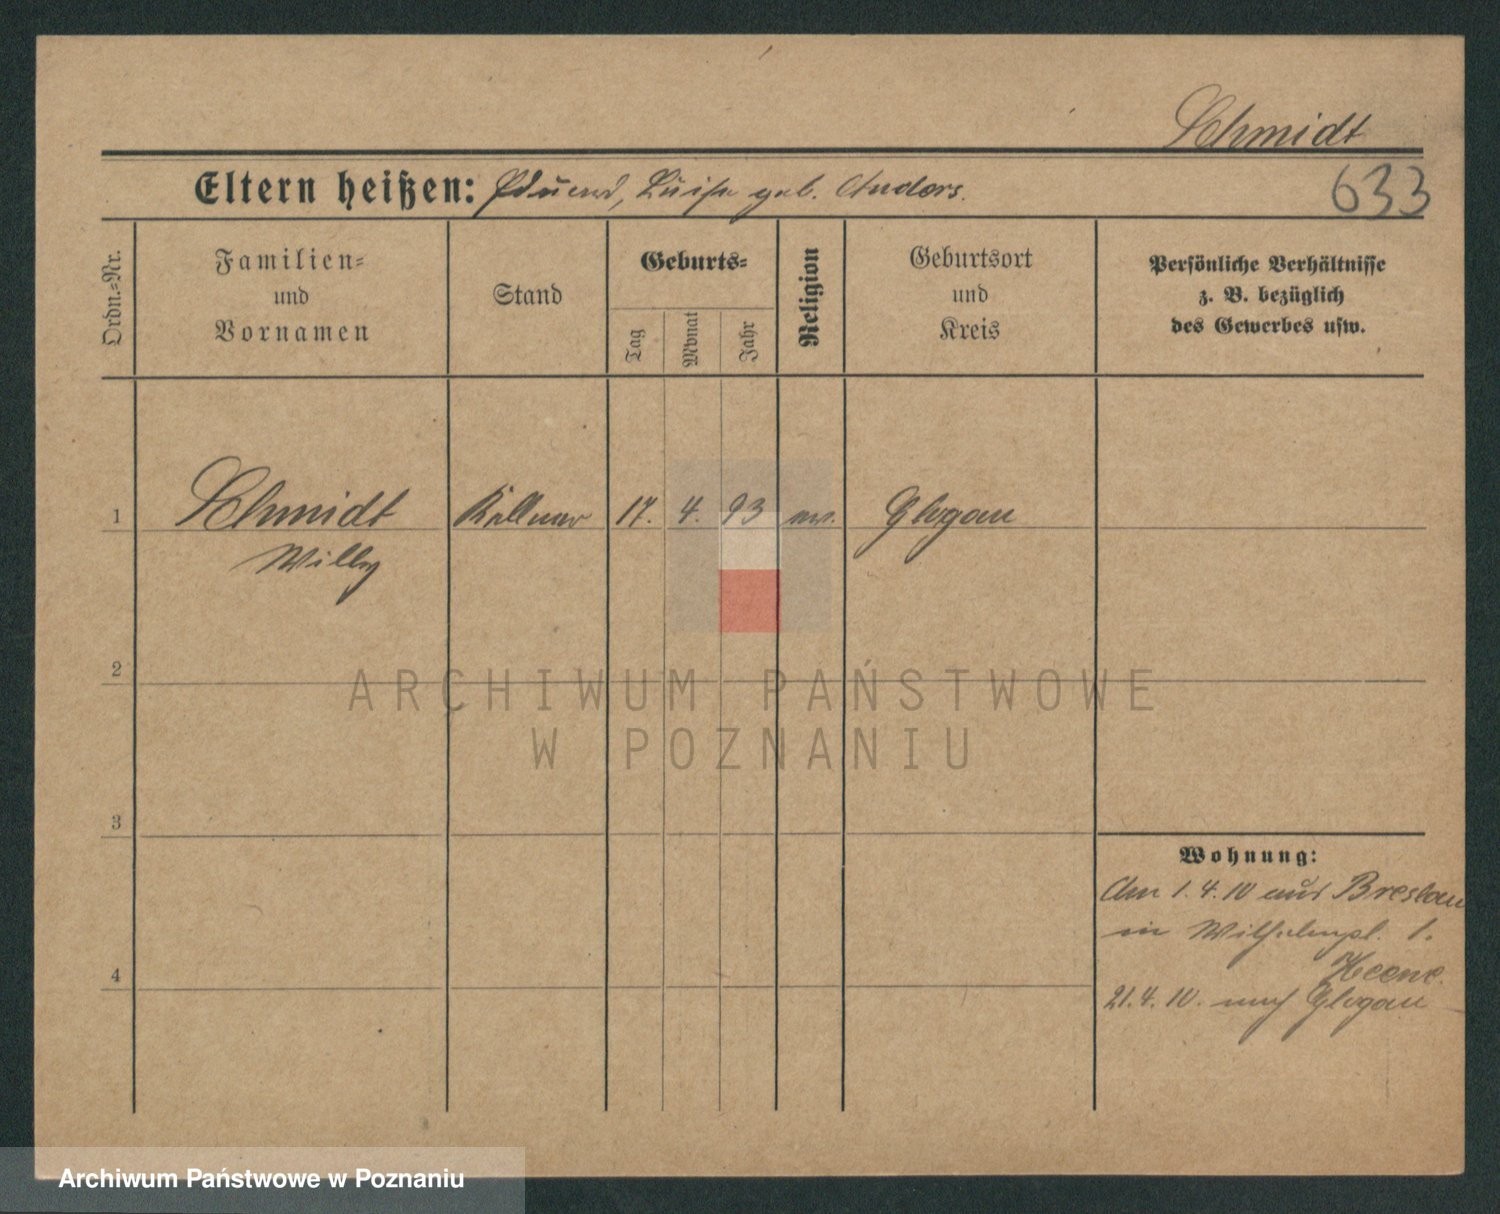 Schmidt
Eltern heißen: Eduard, Luise geb. Anders.
633
Ordn.-Nr.
Familien-
und
Vornamen
Stand
Geburts-
Tag
Monat
Jahr
Religion
Geburtsort
und
Kreis
Persönliche Verhältnisse
z. B. bezüglich
des Gewerbes usw.
1 Schmidt Kellner 17. 4. 93 ev. Glogau
Willy
2
ARCHIWUM PAŃSTWOWE
W POZNANIU
3
Wohnung:
Am 1.4.10 aus Breslau
in Wilhelmpl. 1.
21.4.10. nach Glogau
4
Archiwum Państwowe w Poznaniu